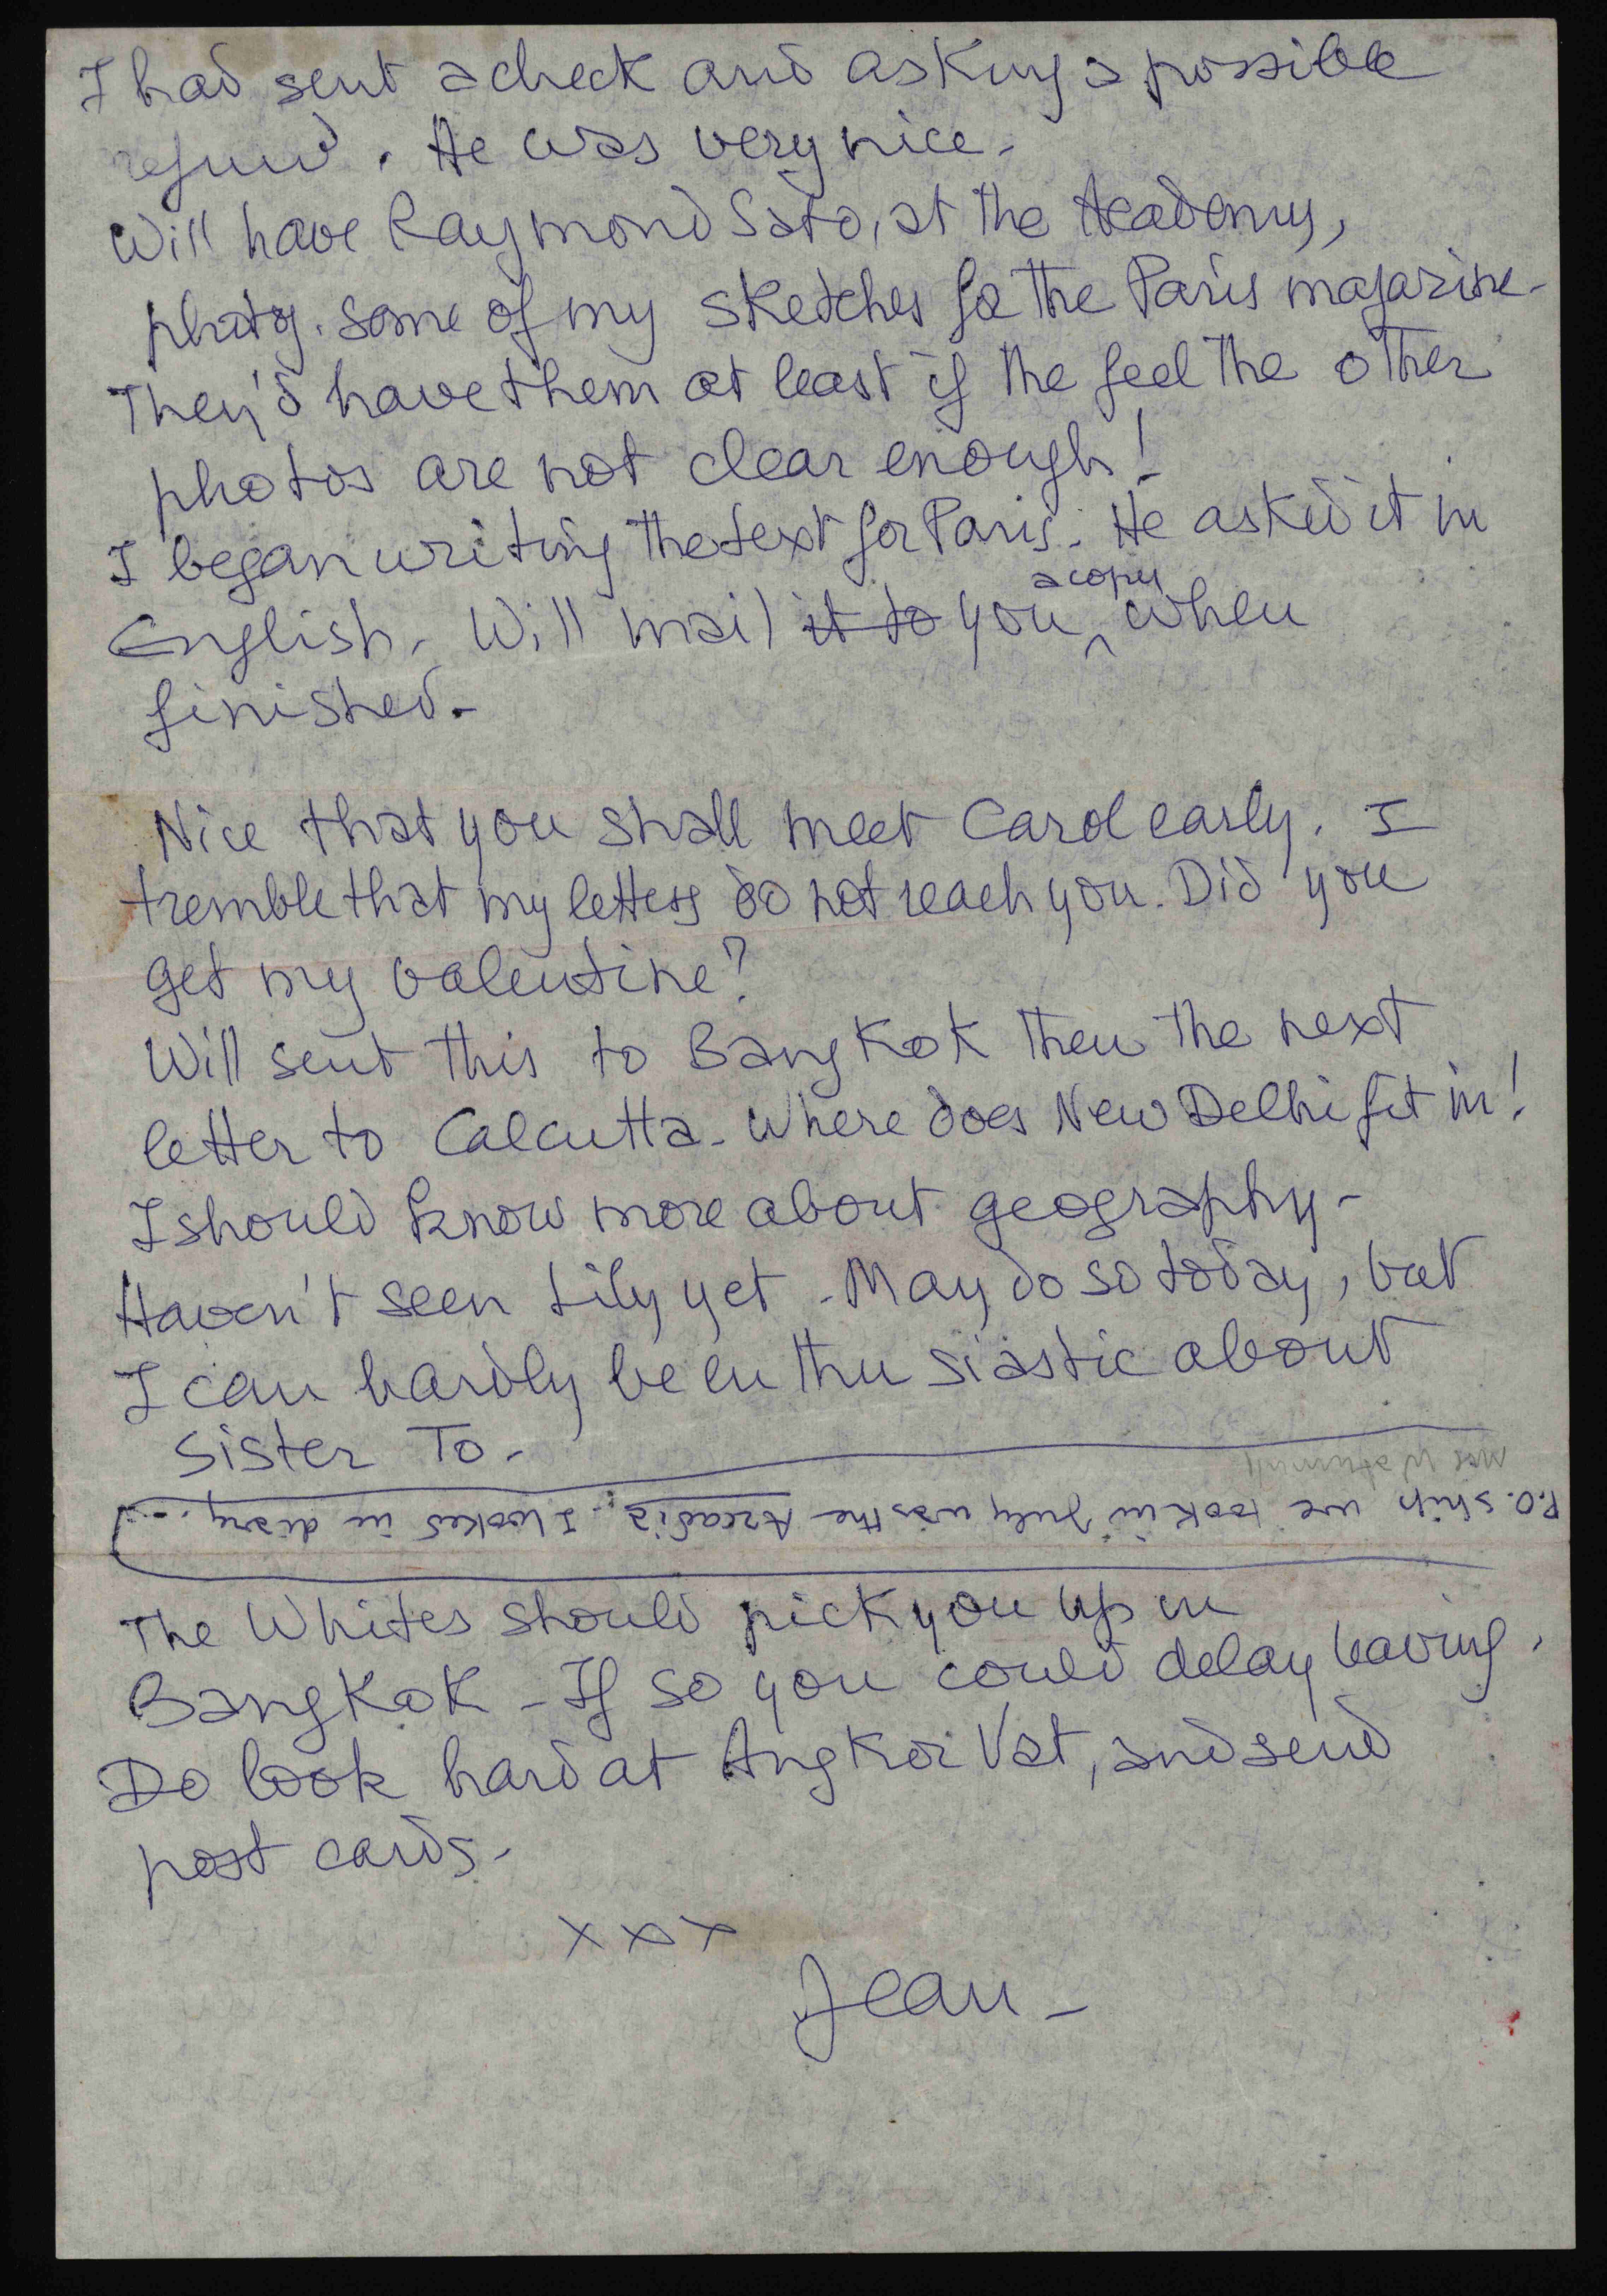 I had sent a check and asking a possible
refund. He was very nice.
Will have Raymond Sato, at the Academy,
photog. some of my sketches for the Paris magazine.
They'd have them at least if the feel the other
photos are not clear enough!
I began writing the text for Paris. He asked it in
English. Will mail it to you a copy when
finished.
Nice that you shall meet Carol early. I
tremble that my letters do not reach you. Did you
get my valentine?
Will sent this to Bangkok then the next
letter to Calcutta. Where does New Delhi fit in!
I should know more about geography -
Haven't seen Lily yet. May do so today, but
I can hardly be enthusiastic about
Sister To.
Mrs Watumull
P.O. ship we took in July was the Arcadia. I looked in diary...
The Whites should pick you up in
Bangkok - If so you could delay leaving.
Do look hard at Angkor Vat, and send
post cards.
x x x
Jean -